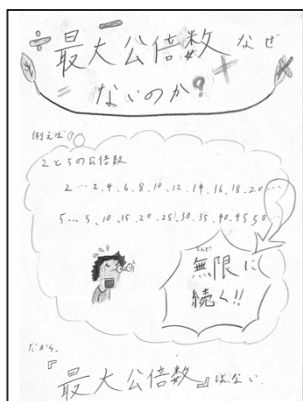 最大公倍数なぜ
ないのか?
例えば
2と5の公倍数
2…2.4.6.8.10.12.14.16.18.20…
5…5.10.15.20.25.30.35.40.45.50…
むげん
無限に
続く!!
だから、
『最大公倍数』はない。